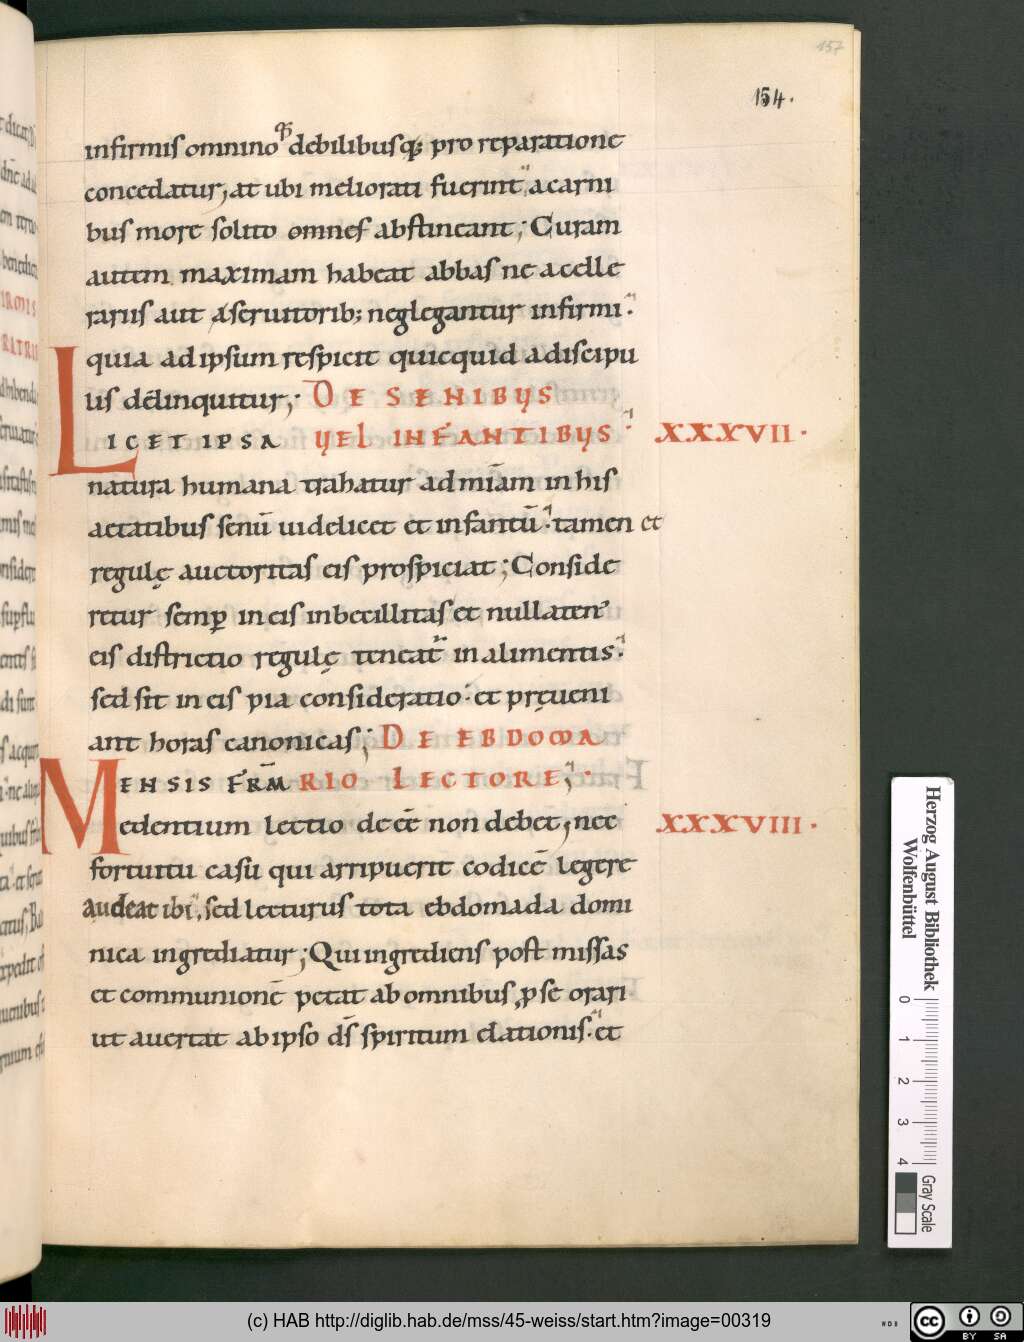 157
154.
infirmis omnino debilibusq; pro reparatione
concedatur, at ubi meliorati fuerint, a carni
bus more solito omnes abstineant; Curam
autem maximam habeat abbas ne a celle
rariis aut á seruitorib; neglegantur infirmi.
quia ad ipsum respicit quicquid a discipu
lis delinquitur; DE SENIBUS
LICET IPSA UEL INFANTIBUS. XXXVII.
natura humana trahatur ad miām in his
aetatibus senū uidelicet et infantū. tamen et
regulę auctoritas eis prospiciat; Conside
retur semp̄ in eis inbecillitas et nullaten'
eis districtio regulę teneat̄ in alimentis.
sed sit in eis pia consideratio. et pręueni
ant horas canonicas; DE EBDOMA
MENSIS FRM̄ RIO LECTORE;
edentium lectio deēē non debet, nec XXXVIII.
fortuitu casu qui arripuerit codicē legere
audeat ibi, sed lecturus tota ebdomada domi
nica ingrediatur; Qui ingrediens post missas
et communionē petat ab omnibus p̱ se orari
ut auertat ab ipso dš spiritum elationis. et
Herzog August Bibliothek
Wolfenbüttel
0 1 2 3 4
Gray Scale
(c) HAB http://diglib.hab.de/mss/45-weiss/start.htm?image=00319
cc BY SA